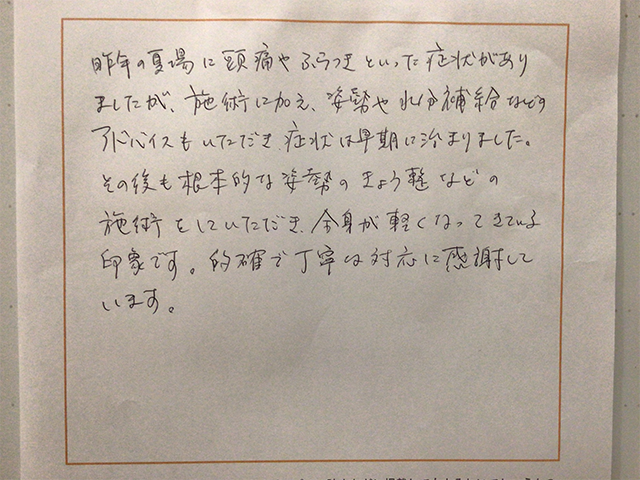 昨年の夏場に頭痛やふらつきといった症状があり
ましたが、施術に加え、姿勢や水分補給などの
アドバイスもいただき症状は早期に治まりました。
その後も根本的な姿勢のきょう整などの
施術をしていただき、全身が軽くなってきている
印象です。的確で丁寧な対応に感謝して
います。